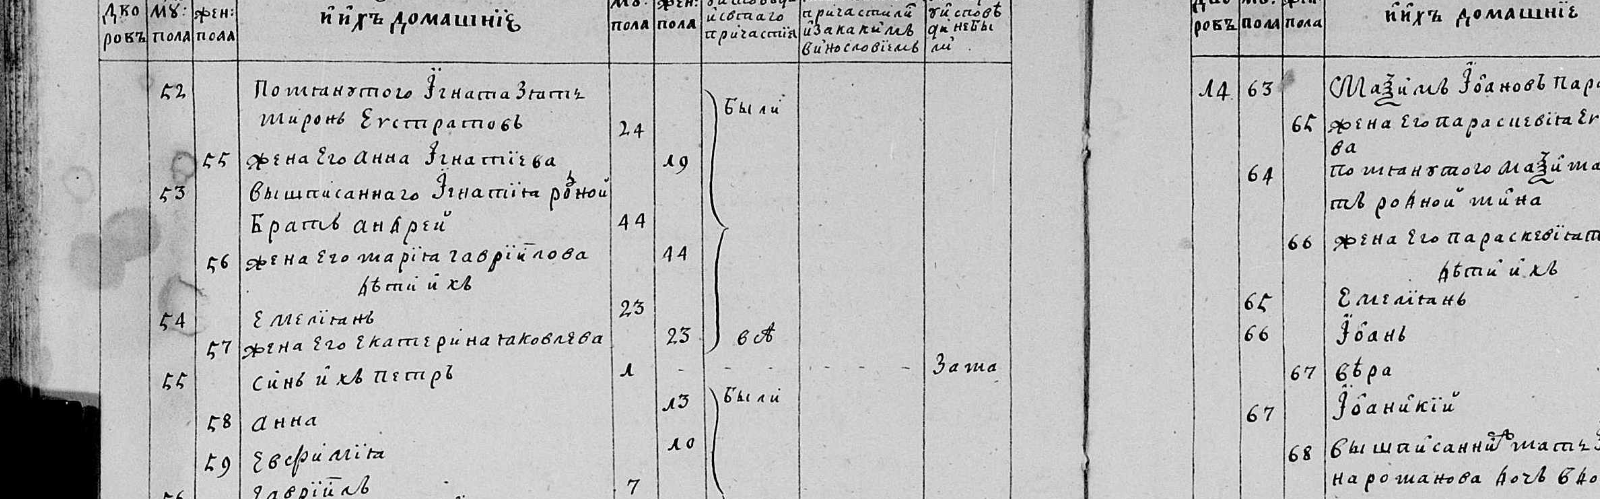 дво
ровъ
му:
пола
жен:
пола
и ихъ домашніе
му:
пола
жен:
пола
причастія
причастили
и за какимъ
винословіемъ
исповѣ
ди не бы
ли
52 помянутого Їгната зять
миронъ Евстратовъ 24 были
55 жена Его анна Їгнатїева 19
53 вышписаннаго Їгнатїя родной
братъ андрей 44
56 жена Его марїя гаврїилова 44
дѣти ихъ
54 Емелїянъ 23
57 жена Его Екатерина яковлева 23 всѣ
55 синъ ихъ петръ 1 - - - - - - - за ма
58 анна 13 были
59 Евфимїя 10
56 гаврїилъ 7
ровъ
му:
пола
жен:
пола
и ихъ домашніе
14 63 Маѯимъ Їоановъ
65 жена Его параскевїя
ва
64 помянутого маѯима
тъ родной мина
66 жена Его параскевїя
дѣти ихъ
65 Емелїянъ
66 Їоанъ
67 вѣра
67 Їоаникїй
68 вышписанній
на романова дочь